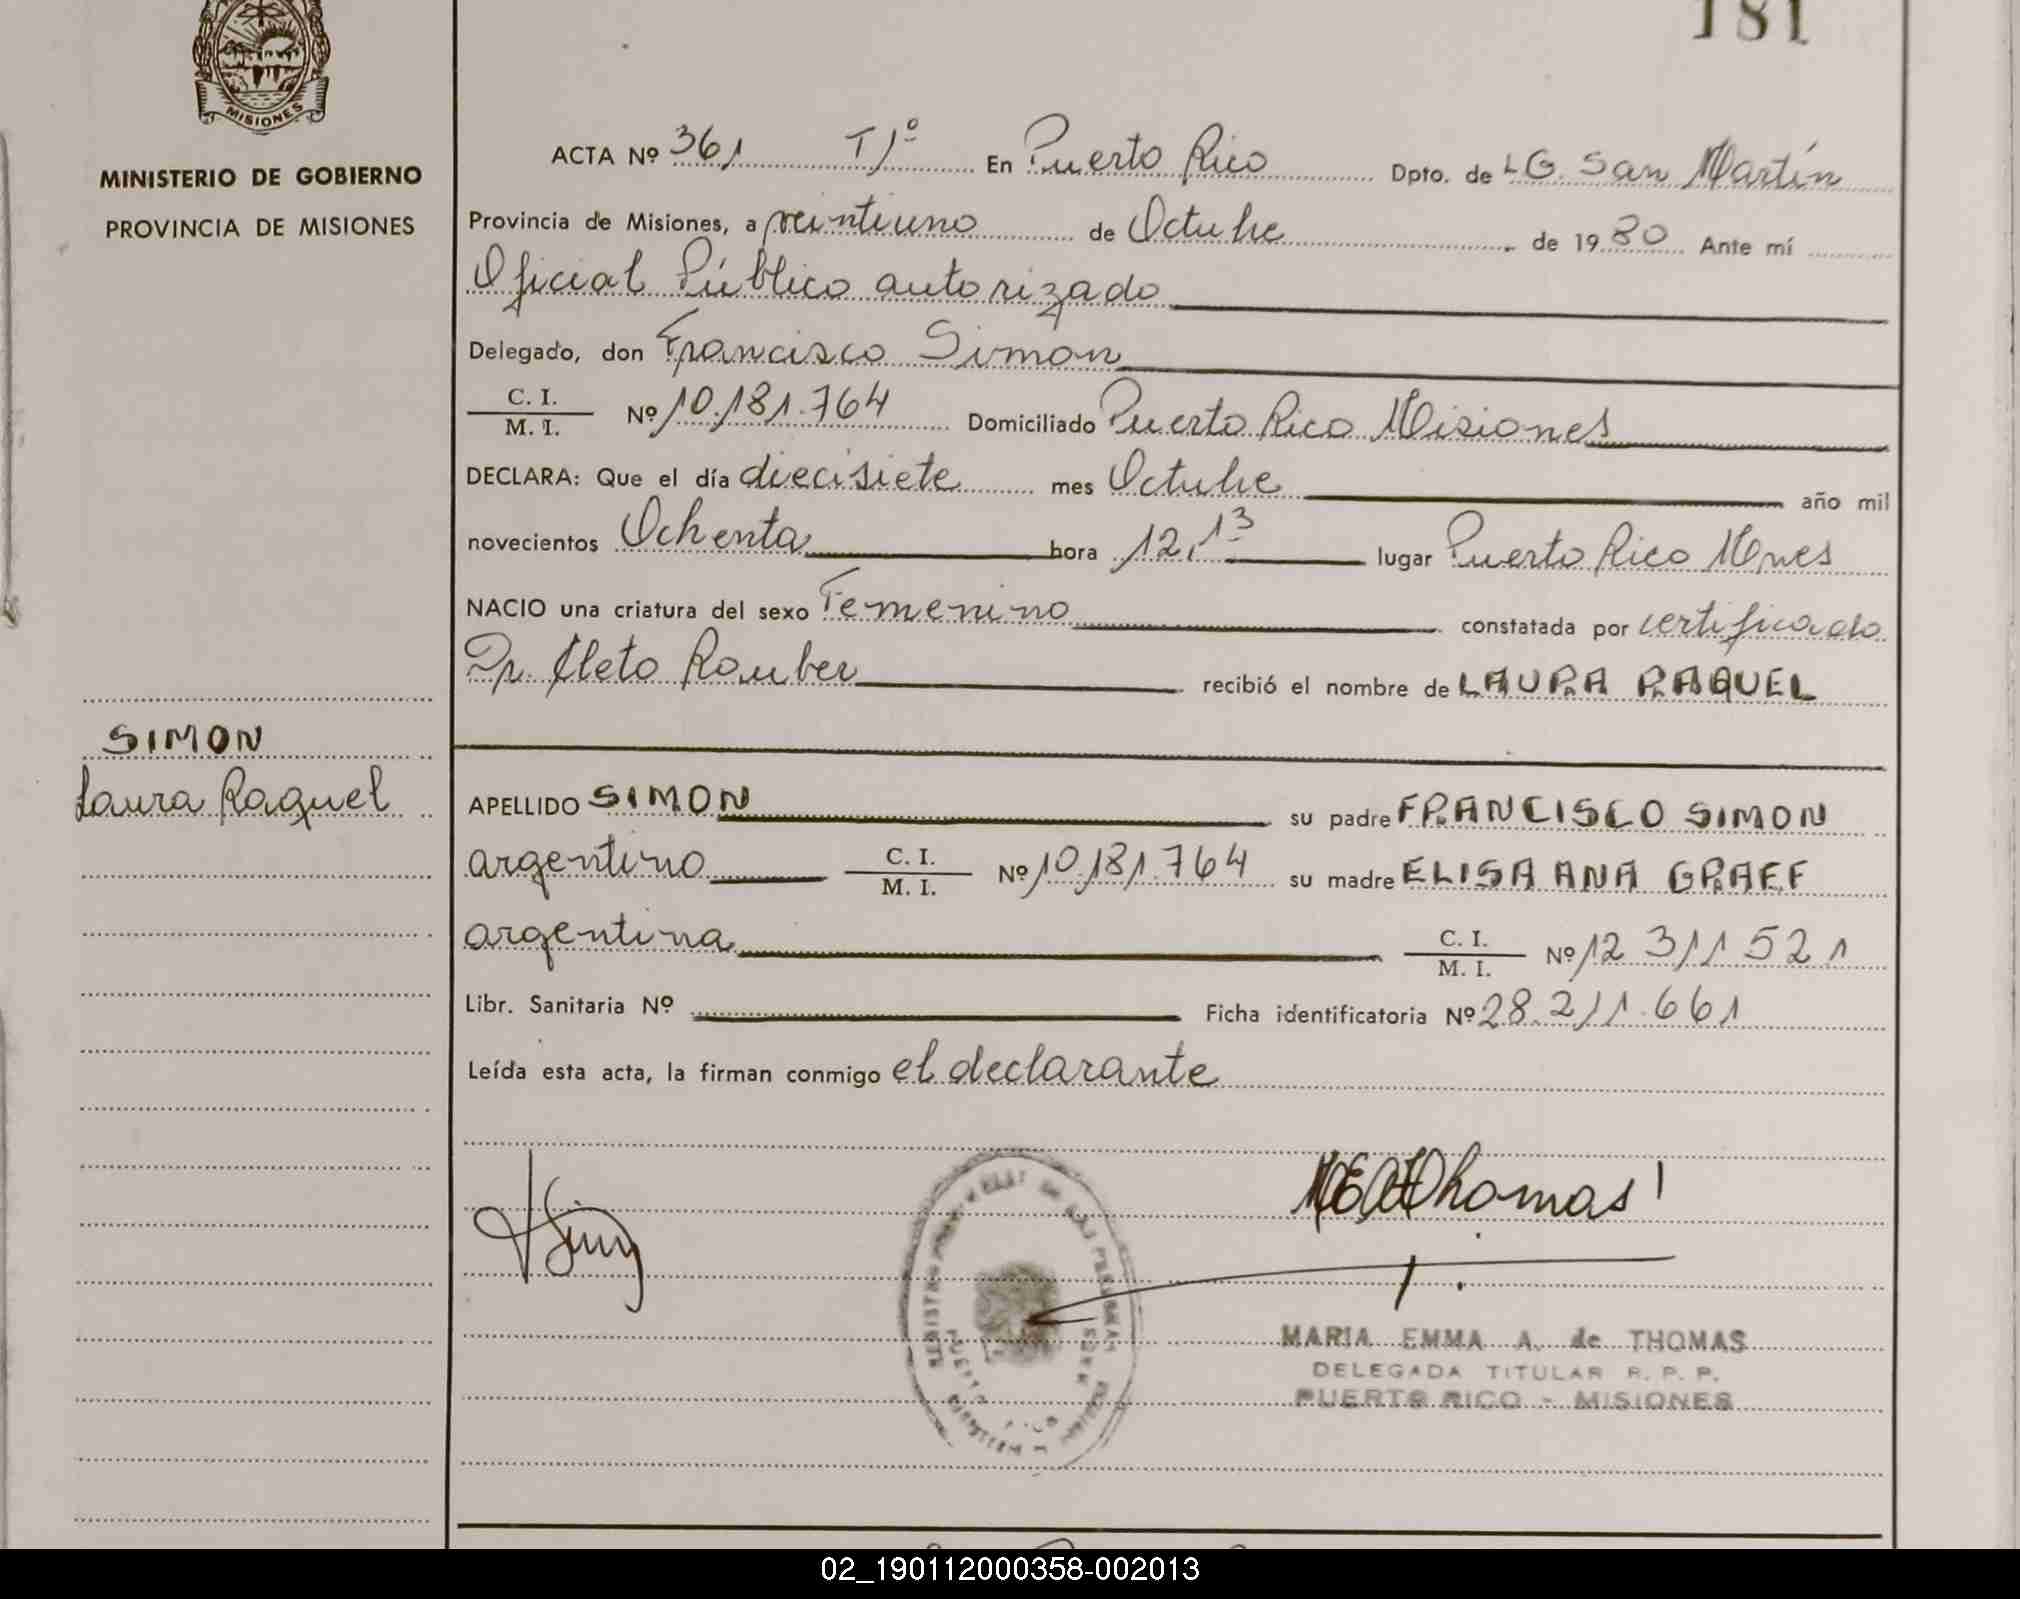 181
MISIONES
MINISTERIO DE GOBIERNO
PROVINCIA DE MISIONES
SIMON
Laura Raquel
ACTA Nº 361 Tº 1º En Puerto Rico Dpto. de LG. San Martín
Provincia de Misiones, a veintiuno de Octubre de 1980 Ante mí
Oficial Público autorizado
Delegado, don Francisco Simon
C. I.
M. I.
Nº 10.181.764 Domiciliado Puerto Rico Misiones
DECLARA: Que el día diecisiete mes Octubre año mil
novecientos Ochenta hora 12,13 lugar Puerto Rico Mnes
NACIO una criatura del sexo Femenino constatada por certificado
Dr. Cleto Rauber recibió el nombre de LAURA RAQUEL
APELLIDO SIMON su padre FRANCISCO SIMON
argentino C. I. M. I. Nº 10.181.764 su madre ELISA ANA GRAEF
argentina C. I. M. I. Nº 12 311 521
Libr. Sanitaria Nº Ficha identificatoria Nº 28.211.661
Leída esta acta, la firman conmigo el declarante
MEAThomas
MARIA EMMA A. de THOMAS
DELEGADA TITULAR R. P. P.
PUERTO RICO - MISIONES
02_190112000358-002013